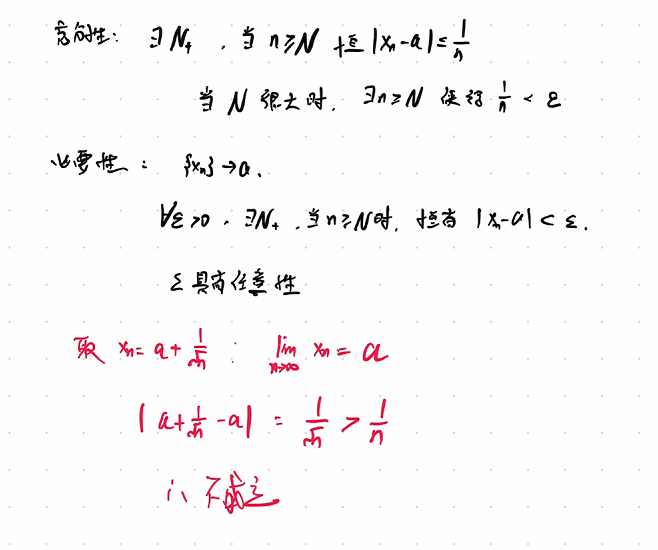 充分性： ∃ N₊ ，当 n≥N 恒 |xₙ-a|≤1/n
当 N 很大时， ∃n≥N 使得 1/n < ε
必要性： {xₙ}→a.
∀ε>0 . ∃N₊ ，当 n≥N时，恒有 |xₙ-a| < ε.
ε 具有任意性
取 xₙ= a + 1/√n : lim n→∞ xₙ = a
| a+1/√n -a | = 1/√n > 1/n
∴ 不成立